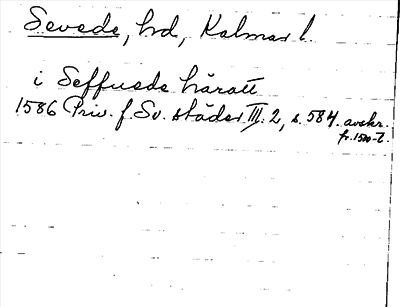 Sevede, hd, Kalmar l.
i Seffuede häratt
1586 Priv. f. Sv. städer III: 2, s. 584. avskr.
fr. 1500-t.